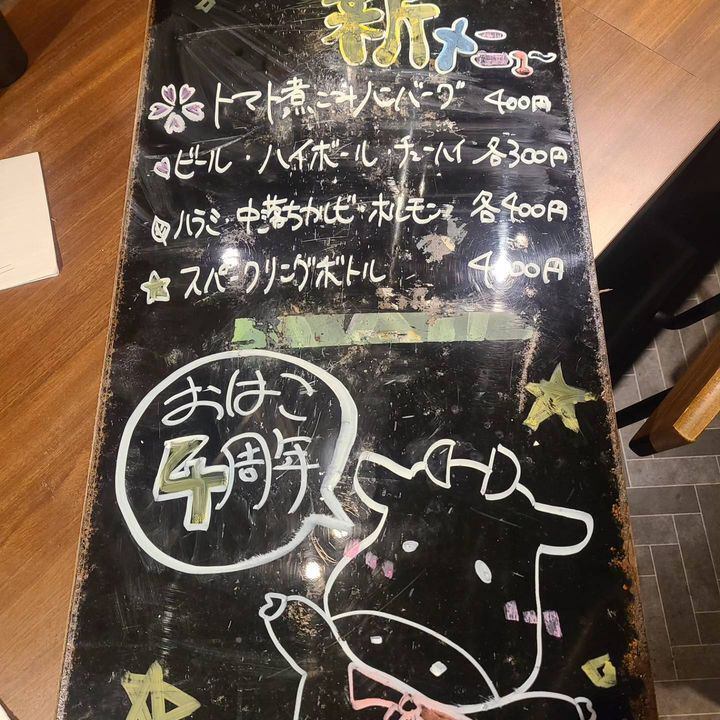 新メニュー
トマト煮こみハンバーグ 400円
ビール・ハイボール・チューハイ 各300円
ハラミ・中落ちカルビ・ホルモン 各400円
スパークリングボトル 円
おはこ
4周年